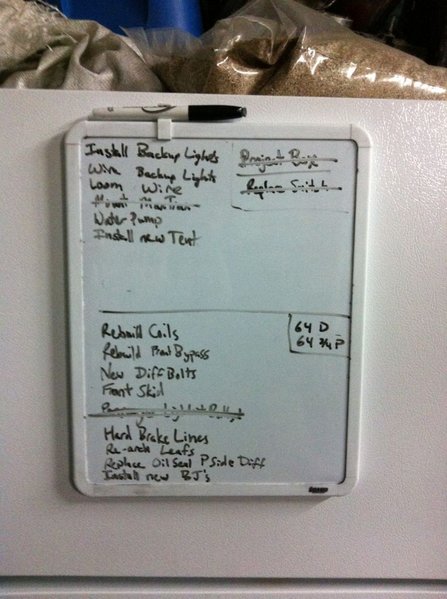 Install Backup Lights
Wire Backup Lights
Loom Wire
Mount
Water Pump
Install new Tent
Project Box
Replace Switch
64 D
64 3/4 P
Rebuild Coils
Rebuild Bypass
New Diff Bolts
Front Skid
Hard Brake Lines
Re-arch Leafs
Replace Oil Seal P Side Diff
Install new BJ's